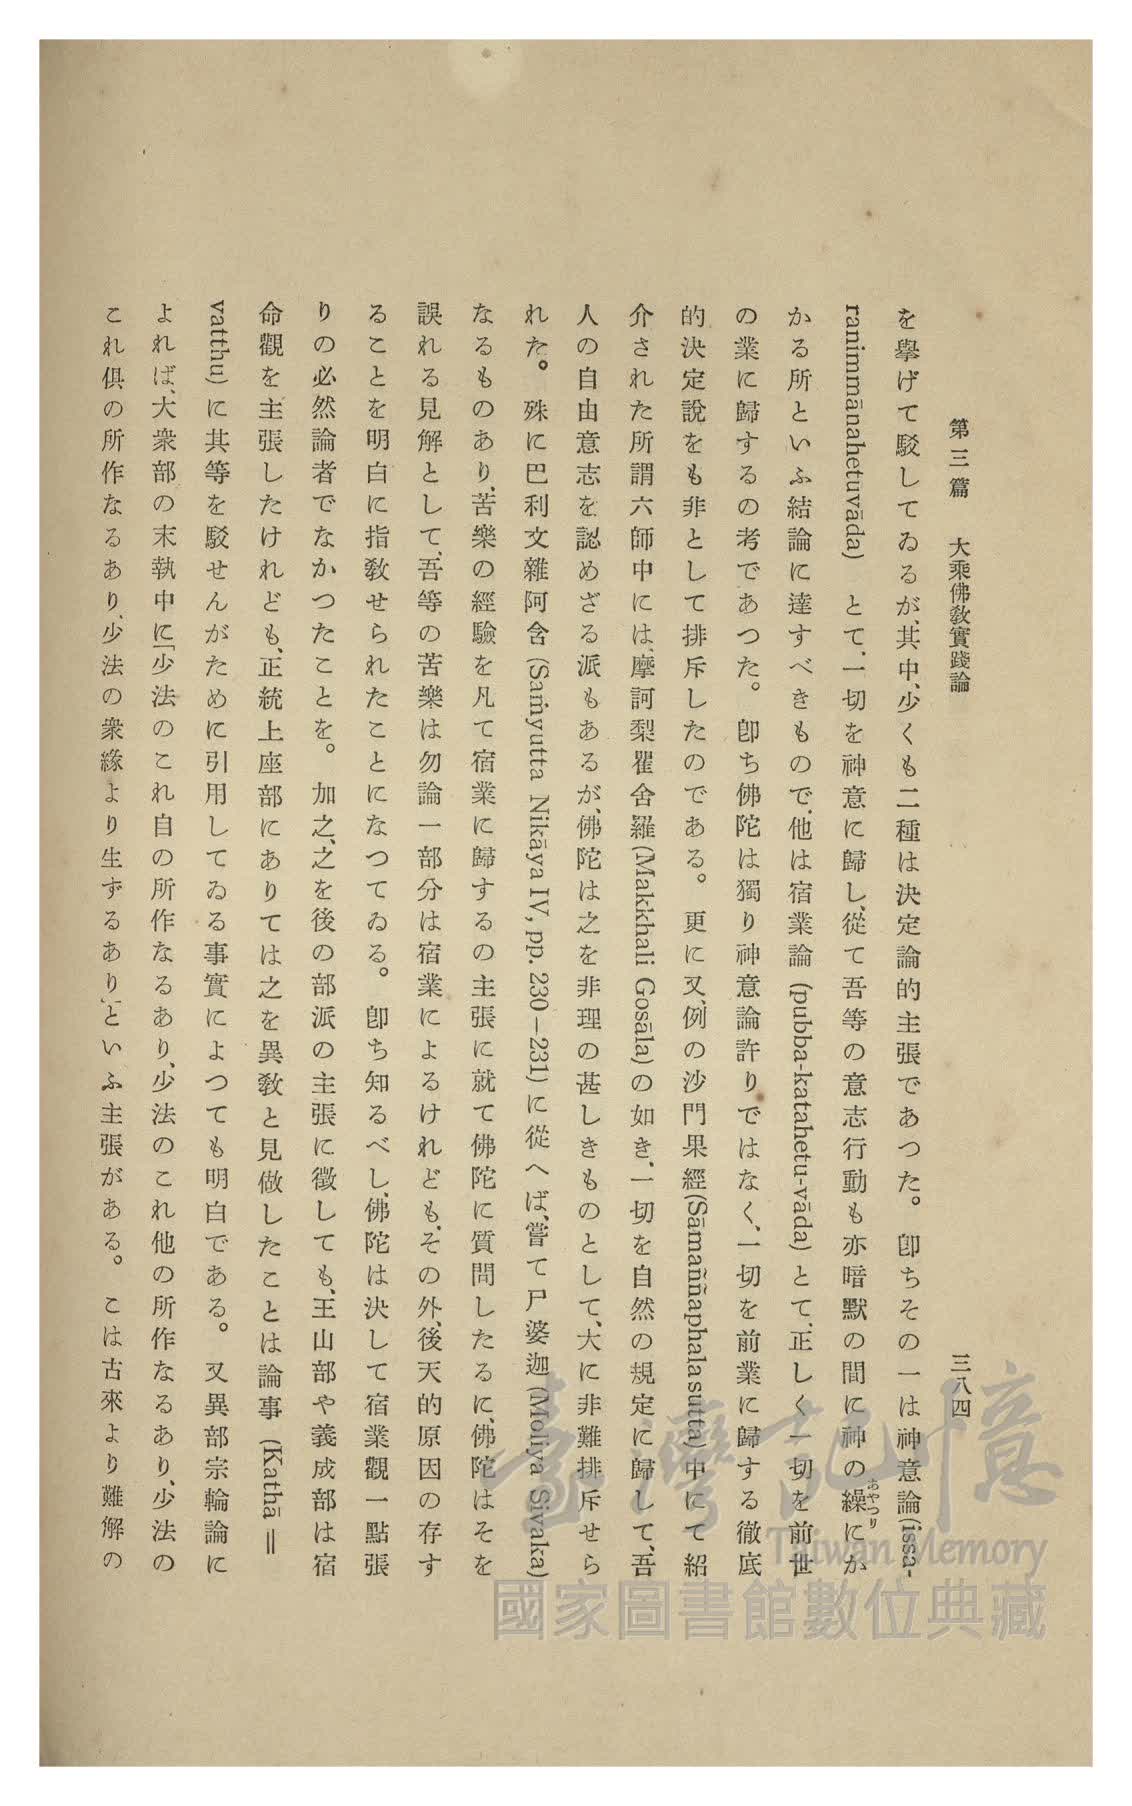 第三篇　大乘佛敎實踐論　三八四
を擧げて駁してゐるが、其中、少くも二種は決定論的主張であつた。卽ちその一は神意論(issa-
ranimmānahetuvāda)とて、一切を神意に歸し、從て吾等の意志行動も亦暗默の間に神の繰にか
あやつり
かる所といふ結論に達すべきもので、他は宿業論(pubba-katahetu-vāda)とて、正しく一切を前世
の業に歸するの考であつた。卽ち佛陀は獨り神意論許りではなく、一切を前業に歸する徹底
的決定說をも非として排斥したのである。更に又、例の沙門果經(Sāmaññaphala sutta)中にて紹
介された所謂六師中には、摩訶梨瞿舍羅(Makkhali Gosāla)の如き、一切を自然の規定に歸して、吾
人の自由意志を認めざる派もあるが、佛陀は之を非理の甚しきものとして、大に非難排斥せら
れた。殊に巴利文雜阿含(Saṁyutta Nikāya IV, pp. 230—231)に從へば、嘗て尸婆迦(Moliya Sivaka)
なるものあり、苦樂の經驗を凡て宿業に歸するの主張に就て佛陀に質問したるに、佛陀はそを
誤れる見解として、吾等の苦樂は勿論一部分は宿業によるけれども、その外、後天的原因の存す
ることを明白に指敎せられたことになつてゐる。卽ち知るべし、佛陀は決して宿業觀一點張
りの必然論者でなかつたことを。加之、之を後の部派の主張に徵しても、王山部や義成部は宿
命觀を主張したけれども、正統上座部にありては之を異敎と見做したことは論事(Kathā＝
vatthu)に其等を駁せんがために引用してゐる事實によつても明白である。又異部宗輪論に
よれば、大衆部の末執中に「少法のこれ自の所作なるあり、少法のこれ他の所作なるあり、少法の
これ俱の所作なるあり、少法の衆緣より生ずるあり」といふ主張がある。こは古來より難解の
臺灣記憶
Taiwan Memory
國家圖書館數位典藏